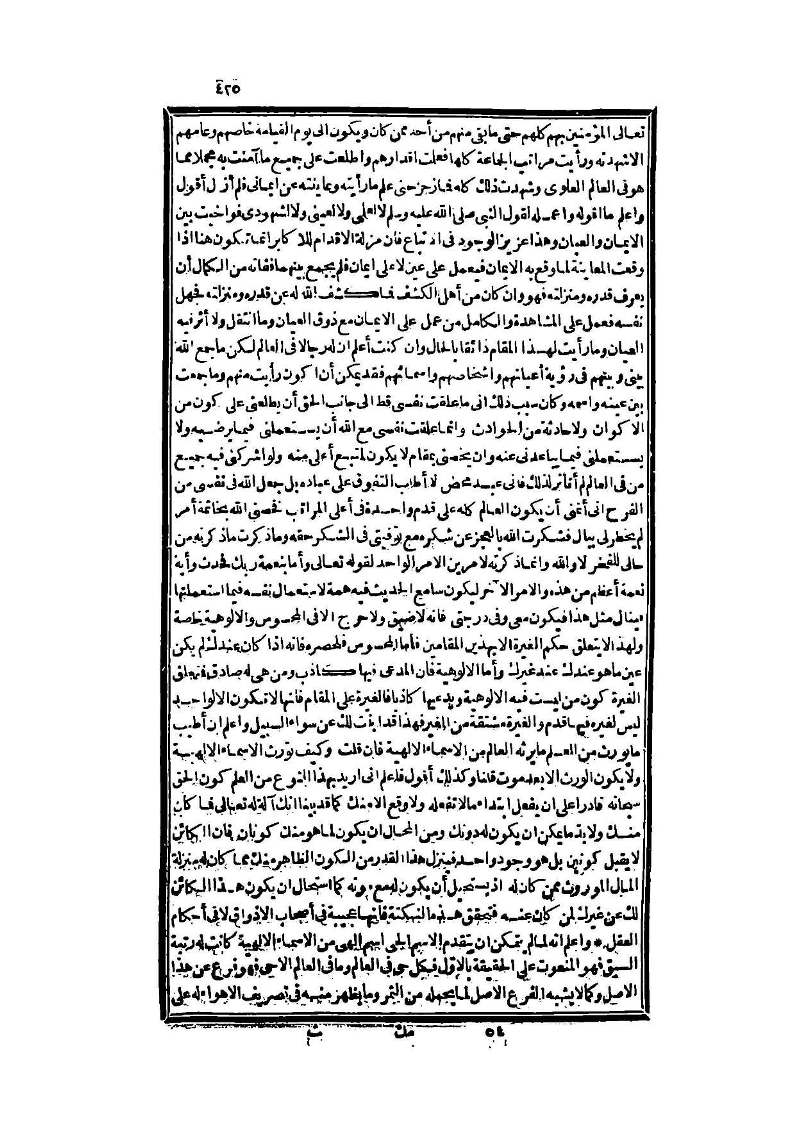 ٤٢٥
تعالى المؤمنين بهم كلهم حتى ما بقى منهم من أحد ممن كان ويكون الى يوم القيامة خاصهم وعامهم
الا شهدته ورأيت مراتب الجماعة كلها فعلمت اقدارهم واطلعت على جميع ما آمنت به مجملا مما
هو فى العالم العلوى وشهدت ذلك كله فما زحزحنى علم ما رأيته وعاينته عن ايمانى فلم أزل أقول
واعلم ما اقوله واعمله لقول النبى صلى الله عليه وسلم لا لعلمى ولا لعينى ولا لشهودى فواخيت بين
الايمان والعيان وهذا عزيز الوجود فى الاتباع فان مزلة الاقدام للاكابر انما تكون هنا اذا
وقعت المعاينة لما وقع به الايمان فيعمل على عين لا على ايمان فلم يجمع بينهما ففاته من الكمال أن
يعرف قدره ومنزلته فهو وان كان من أهل الكشف فما كشف الله له عن قدره ومنزلته فجهل
نفسه فعمل على المشاهدة والكامل من عمل على الايمان مع ذوق العيان وما انتقل ولا أثر فيه
العيان وما رأيت لهذا المقام ذائقا بالحال وان كنت أعلم ان له رجالا فى العالم لكن ما جمع الله
بينى وبينهم فى رؤية أعيانهم واشخاصهم واسمائهم فقد يمكن أن اكون رأيت منهم وما جمعت
بين عينه واسمه وكان سبب ذلك انى ما علقت نفسى قط الى جانب الحق أن يطلعنى على كون من
الاكوان ولا حادثة من الحوادث وانما علقت نفسى مع الله أن يستعملنى فيما يرضيه ولا
يستعملنى فيما يباعدنى عنه وان يخصنى بمقام لا يكون لمتبع أعلى منه ولو اشركنى فيه جميع
من فى العالم لم أتأثر لذلك فانى عبد محض لا أطلب التفوق على عباده بل جعل الله فى نفسى من
الفرح انى أتمنى أن يكون العالم كله على قدم واحدة فى أعلى المراتب فخصنى الله بخاتمة أمر
لم يخطر لى ببال فشكرت الله بالعجز عن شكره مع توفيتى فى الشكر حقه وما ذكرت ما ذكرته من
حالى للفخر لا والله وانما ذكرته لامرين الامر الواحد لقوله تعالى وأما بنعمة ربك فحدث وأية
نعمة أعظم من هذه والامر الآخر ليكون سامع الحديث فيه همة لاستعمال نفسه فيما استعملتها
فينال مثل هذا فيكون معى وفى درجتى فانه لا ضيق ولا حرج الا فى المحسوس والالوهية خاصة
ولهذا لا يتعلق حكم الغيرة الا بهذين المقامين فأما المحسوس فلحصره فانه اذا كان عندك لم يكن
عين ما هو عندك عند غيرك وأما الالوهية فان المدعى فيها كاذب ومن هى له صادق فتعلق
الغيرة كون من ليست فيه الالوهية ويدعيها كاذبا فالغيرة على المقام فانها لا تكون الا لواحد
ليس لغيره فيها قدم والغيرة مشتقة من الغير فهذا قد أبنت لك عن سواء السبيل واعلم ان أطيب
ما يورث من العلم ما يرثه العالم من الاسماء الالهية فان قلت وكيف تورث الاسماء الالهية
ولا يكون الورث الا بعد موت قلنا وكذلك أقول فاعلم انى اريد بهذا النوع من العلم كون الحق
سبحانه قادرا على ان يفعل ابتداء مالا تفعله ولا وقع الا منك كما قد بينا انك آلة له تعالى فما كان
منك ولا بد ما يمكن ان يكون له دونك ومن المحال ان يكون لما هو منك كونان فان الكائن
لا يقبل كونين بل هو وجود واحد فينزل هذا القدر من السكون الظاهر منك مما كان له منزلة
المال الموروث ممن كان له اذ يستحيل أن يكون له مع موته كما استحال ان يكون هذا الكائن
لك عن غيرك لمن كان عنه فتحقق هذه النكتة فانها عجيبة فى أصحاب الاذواق لا فى أحكام
العقل * واعلم انه لما لم يتمكن ان يتقدم الاسم الحى اسم الهى من الاسماء الالهية كانت له رتبة
السبق فهو المنعوت على الحقيقة بالاول فكل حى فى العالم وما فى العالم الا حى فهو فرع عن هذا
الاصل وكما لا يشبه الفرع الاصل لما يحمله من الثمر وما يظهر منه فى تصريف الاهواء له على
٥٤ مك ث